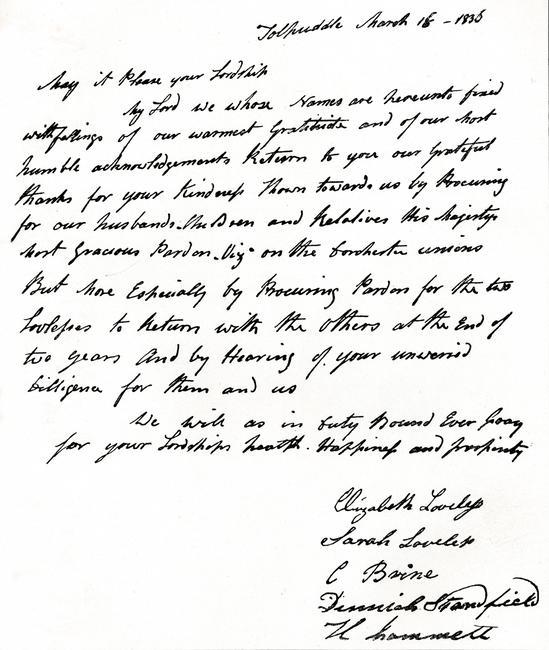 Tolpuddle March 18 - 1836
May it Please your Lordship
My Lord we whose Names are hereunto fixed
with feelings of our warmest Gratitude and of our most
humble acknowledgements Return to you our Grateful
thanks for your Kindness Shown towards us by Procuring
for our husbands Children and Relatives His Majestys
most Gracious Pardon. Viz on the Dorchester unions
But More Especially by Procuring Pardon for the two
Lovlesses to Return with the others at the End of
two years And by Hearing of your unweried
Dilligence for them and us
We will as in Duty Bound Ever Pray
for your Lordships health. Happiness and prosperity
Elizabeth Loveless
Sarah Loveless
C Brine
Dinniah Standfield
H hammett